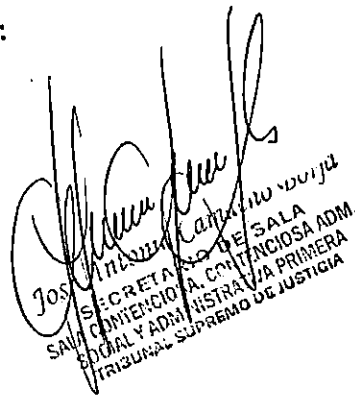 :
José Antonio Camacho Borja
SECRETARIO DE SALA
SALA CONTENCIOSA, CONTENCIOSA ADM.
SOCIAL Y ADMINISTRATIVA PRIMERA
TRIBUNAL SUPREMO DE JUSTICIA